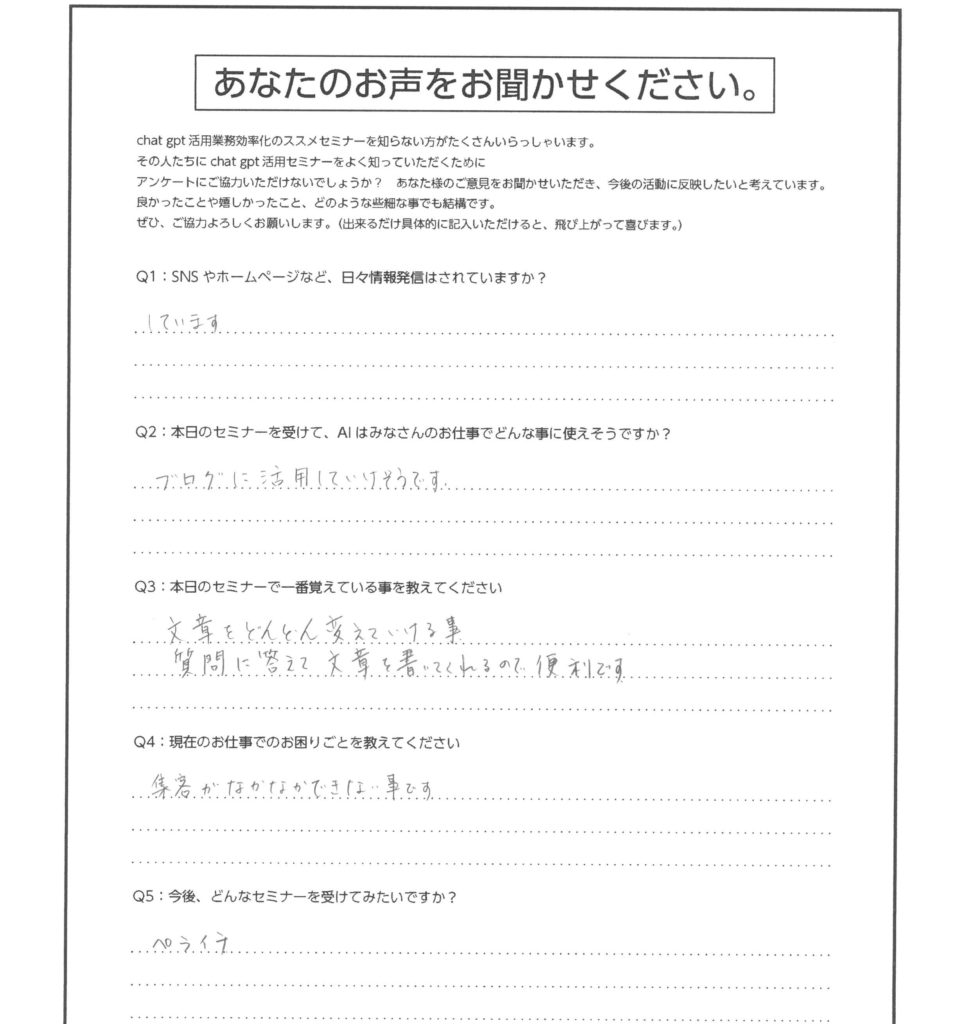 あなたのお声をお聞かせください。
chat gpt 活用業務効率化のススメセミナーを知らない方がたくさんいらっしゃいます。
その人たちに chat gpt 活用セミナーをよく知っていただくために
アンケートにご協力いただけないでしょうか？　あなた様のご意見をお聞かせいただき、今後の活動に反映したいと考えています。
良かったことや嬉しかったこと、どのような些細な事でも結構です。
ぜひ、ご協力よろしくお願いします。（出来るだけ具体的に記入いただけると、飛び上がって喜びます。）
Q1：SNS やホームページなど、日々情報発信はされていますか？
しています
Q2：本日のセミナーを受けて、AI はみなさんのお仕事でどんな事に使えそうですか？
ブログに活用していけそうです
Q3：本日のセミナーで一番覚えている事を教えてください
文章をどんどん変えていける事
質問に答えて文章を書いてくれるので便利です
Q4：現在のお仕事でのお困りごとを教えてください
集客がなかなかできない事です
Q5：今後、どんなセミナーを受けてみたいですか？
ペライチ